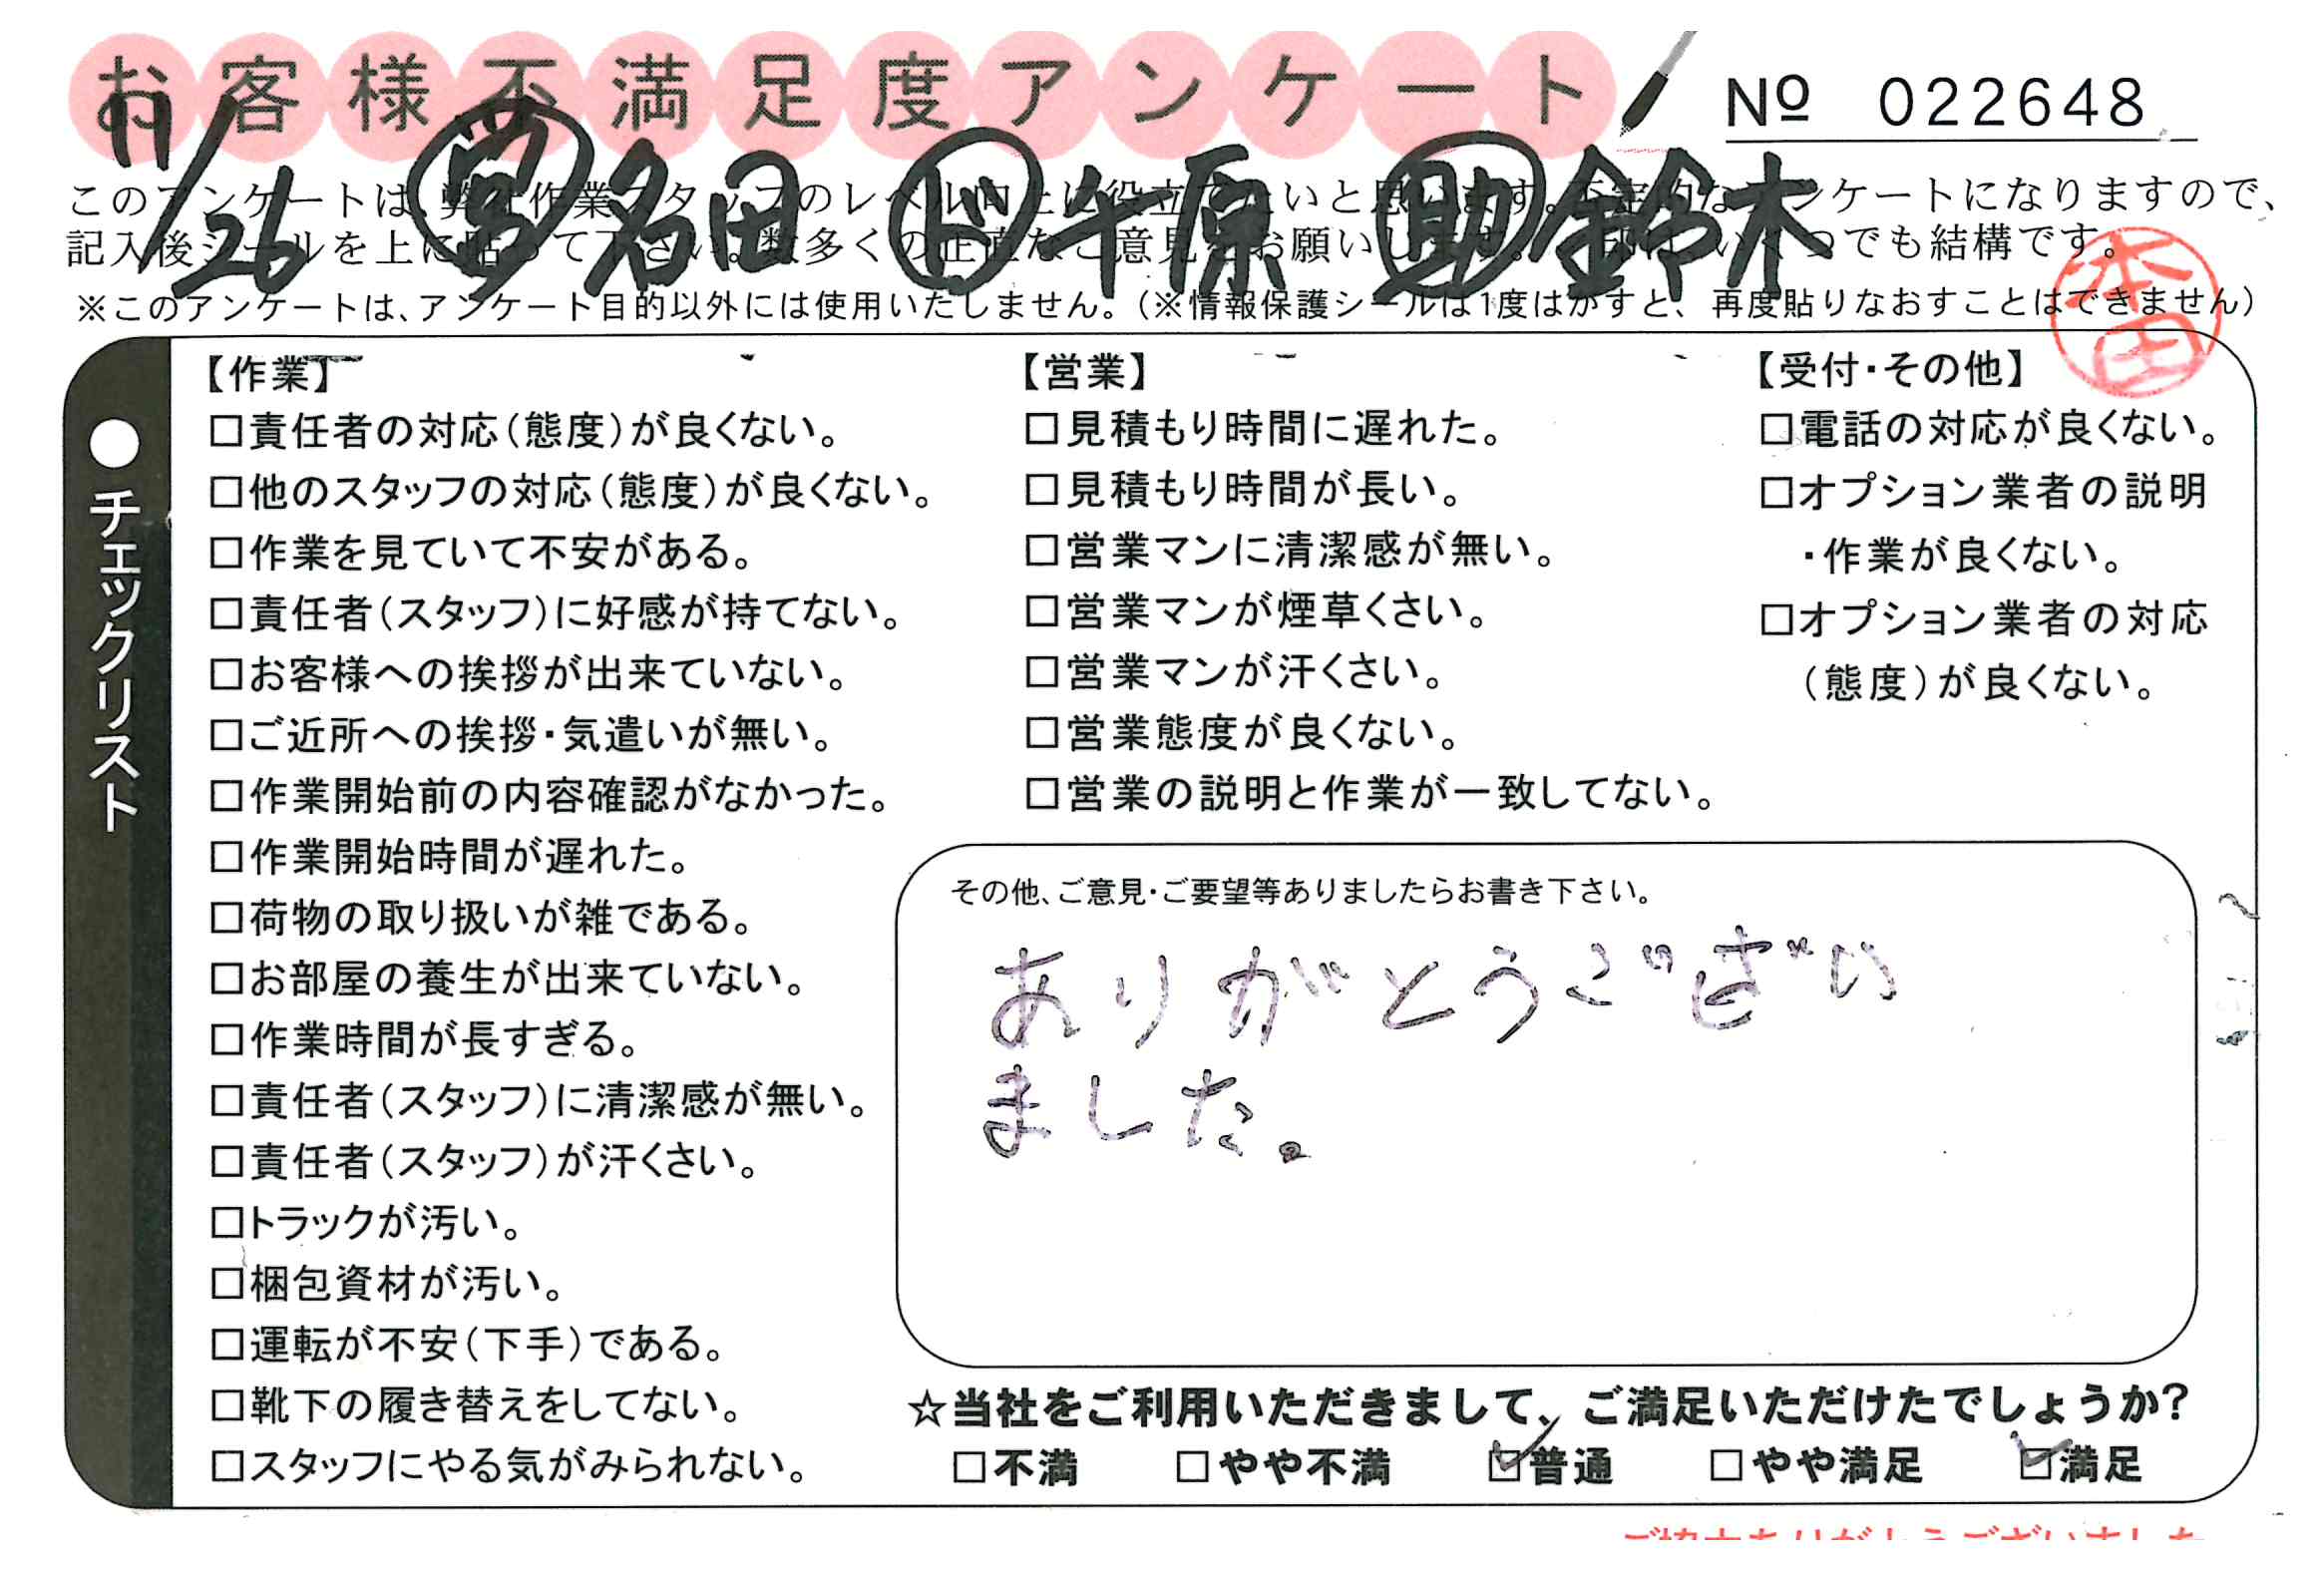 お客様不満足度アンケート
№ 022648
11/26 営 名田 ド 牛原 助 鈴木
このアンケートは、弊社作業スタッフのレベル向上に役立てたいと思います。否定的なアンケートになりますので、
記入後シールを上に貼って下さい。数多くの正直なご意見をお願いします。いくつでも結構です。
※このアンケートは、アンケート目的以外には使用いたしません。(※情報保護シールは1度はがすと、再度貼りなおすことはできません)
本田
●チェックリスト
【作業】
□責任者の対応(態度)が良くない。
□他のスタッフの対応(態度)が良くない。
□作業を見ていて不安がある。
□責任者(スタッフ)に好感が持てない。
□お客様への挨拶が出来ていない。
□ご近所への挨拶・気遣いが無い。
□作業開始前の内容確認がなかった。
□作業開始時間が遅れた。
□荷物の取り扱いが雑である。
□お部屋の養生が出来ていない。
□作業時間が長すぎる。
□責任者(スタッフ)に清潔感が無い。
□責任者(スタッフ)が汗くさい。
□トラックが汚い。
□梱包資材が汚い。
□運転が不安(下手)である。
□靴下の履き替えをしてない。
□スタッフにやる気がみられない。
【営業】
□見積もり時間に遅れた。
□見積もり時間が長い。
□営業マンに清潔感が無い。
□営業マンが煙草くさい。
□営業マンが汗くさい。
□営業態度が良くない。
□営業の説明と作業が一致してない。
【受付・その他】
□電話の対応が良くない。
□オプション業者の説明
・作業が良くない。
□オプション業者の対応
(態度)が良くない。
その他、ご意見・ご要望等ありましたらお書き下さい。
ありがとうござい
ました。
☆当社をご利用いただきまして、ご満足いただけたでしょうか?
□不満 □やや不満 ☑普通 □やや満足 ☑満足
ご協力ありがとうございました